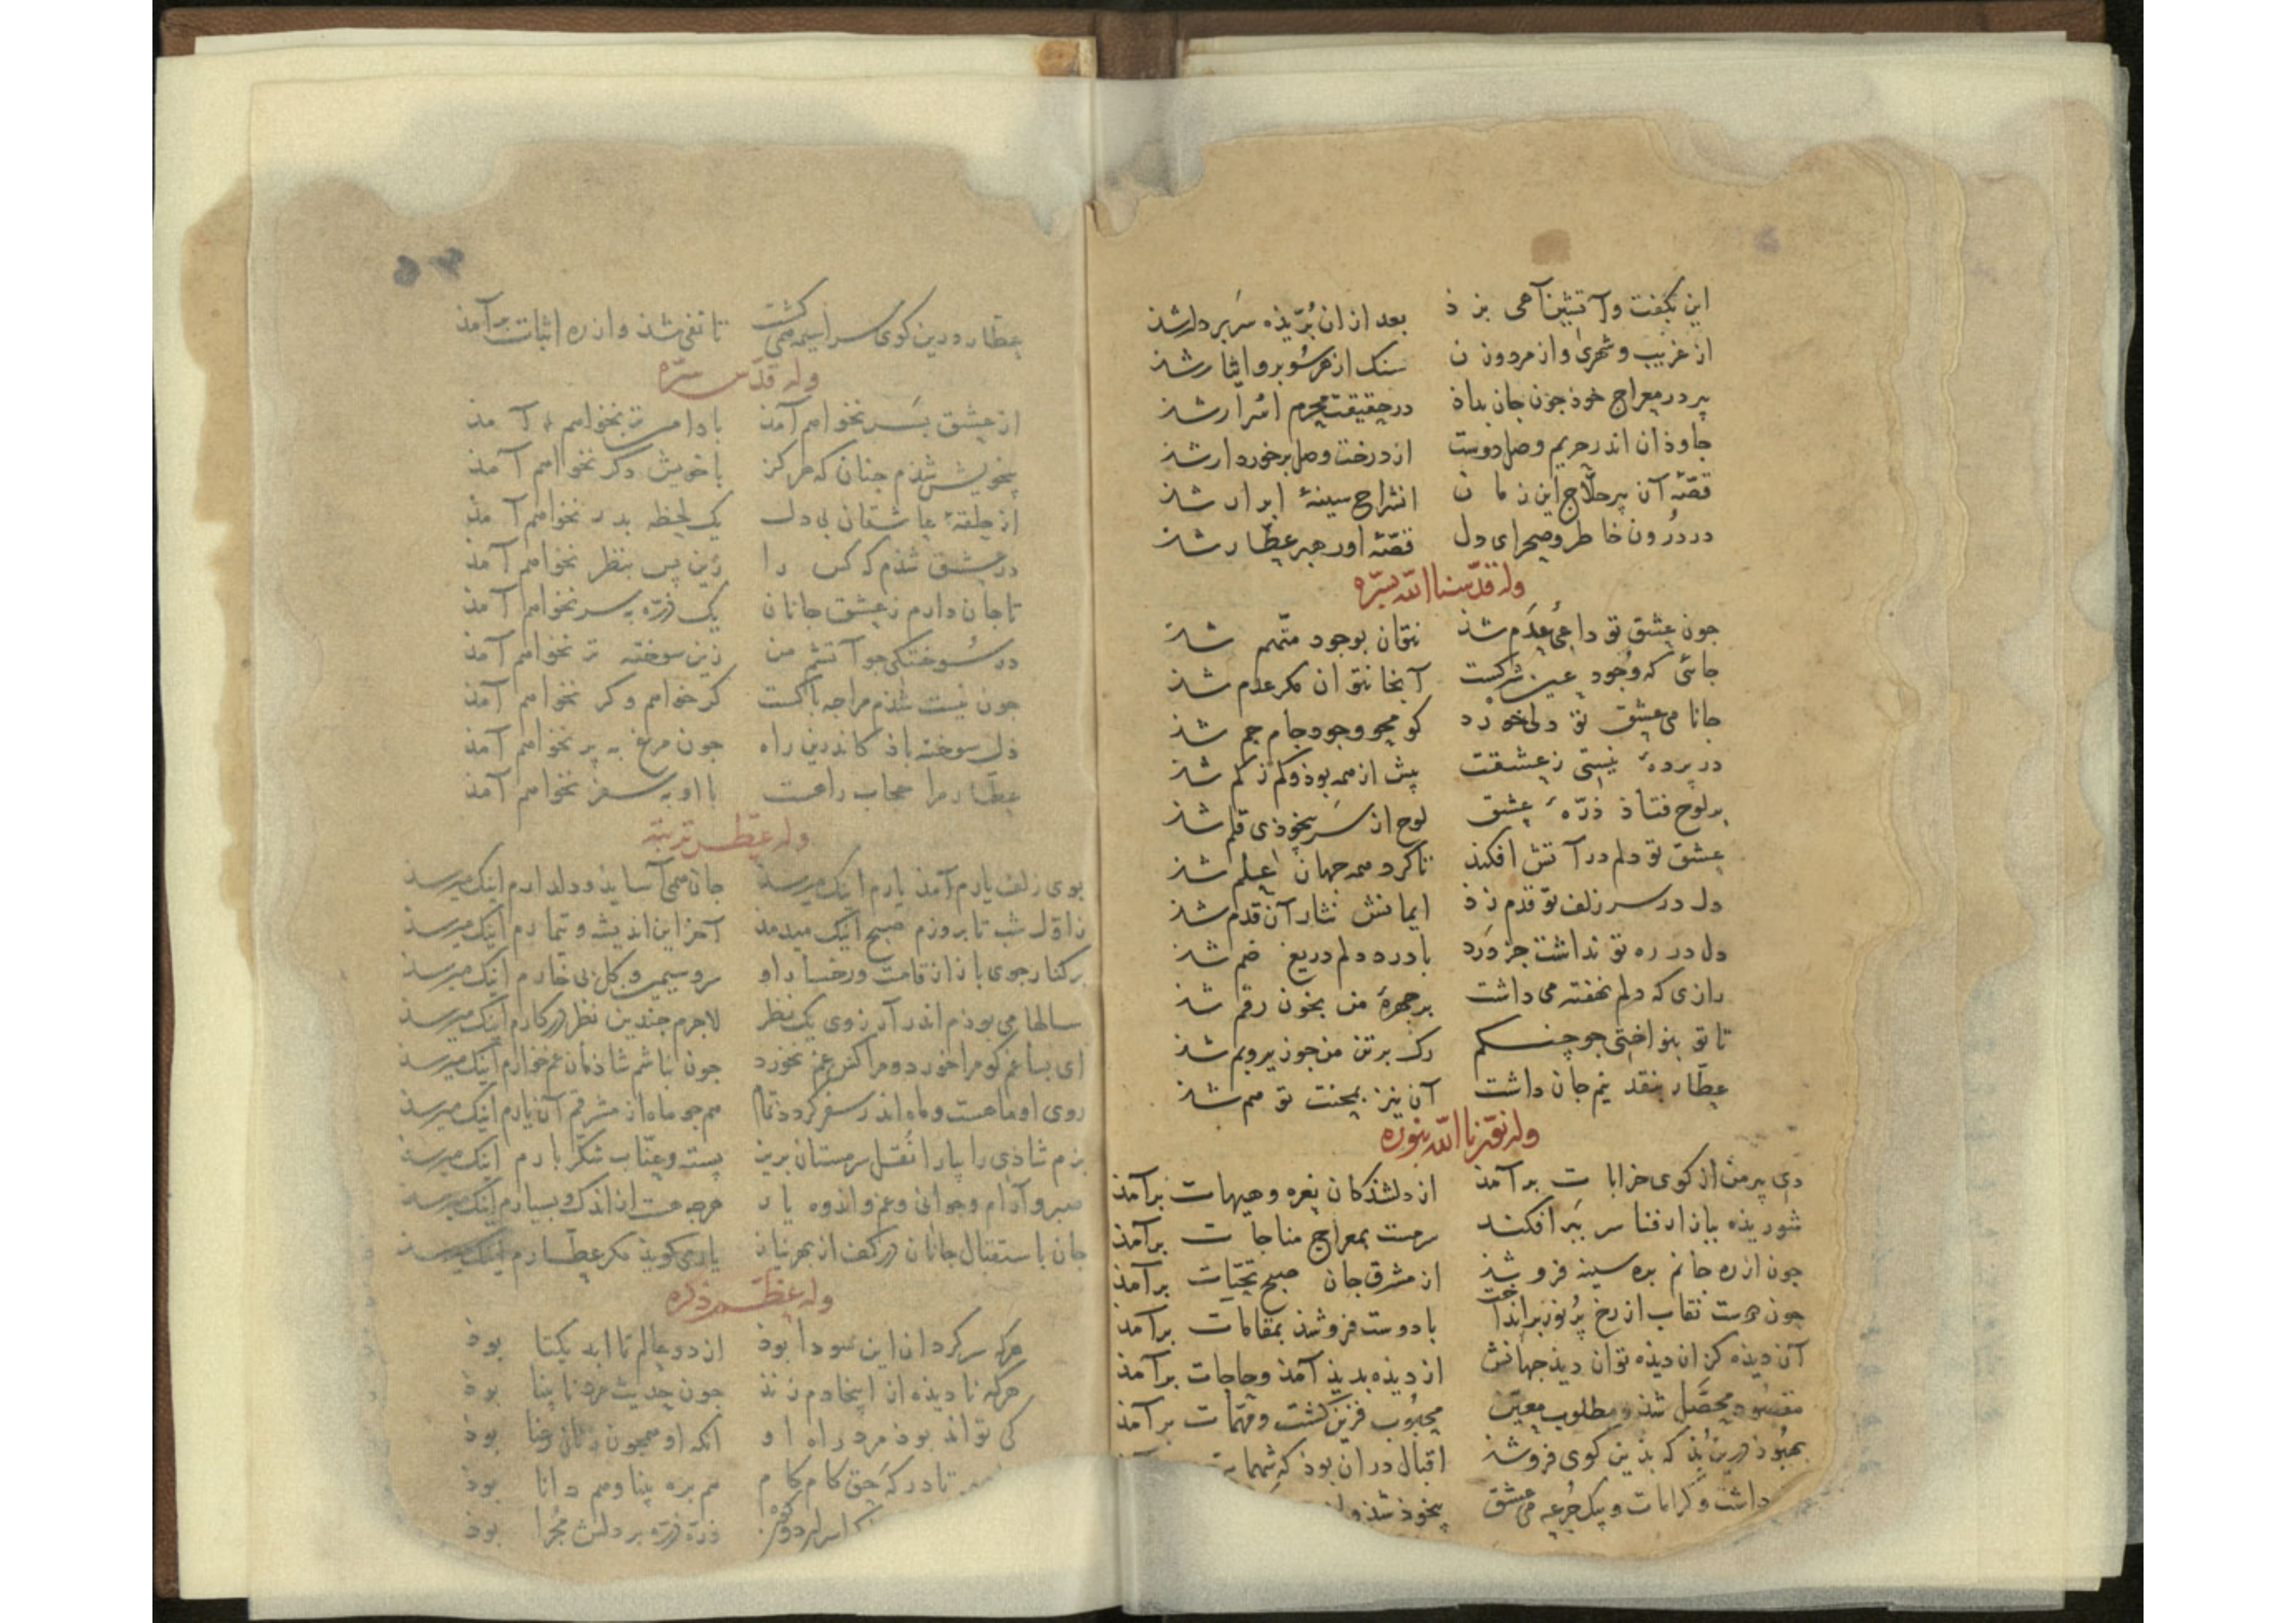 این بگفت و آتشین آهی بزد بعد ازان بر نردبان سر بر دار شذ
از غریب و شهری و از مرد و زن سنک از هر سو برو ایثار شذ
پیر در معراج خوذ جون جان بداذ در حقیقت محرم اسرار شذ
جاوذان اندر حریم وصل دوست از درخت وصل برخوردار شذ
قصّهٔ آن پیر حلّاج این زمان انشراح سینهٔ ابرار شذ
در درون خاطر و صحرای دل قصّهٔ او رهبر عطّار شذ
وله قدّسنا الله بسرّه
جون عشق تو داعی عدم شذ نتوان بوجود متّهم شذ
جائی که وجود عین شرکست آنجا نتوان مکر عدم شذ
جانا می عشق تو دلی خورد کو محو وجود جام جم شذ
در پردهٔ نیستی ز عشقت بیش از همه بوذ و کم ز کم شذ
بر لوح فتاذ ذرّهٔ عشق لوح از سر بیخوذی قلم شذ
عشق تو دلم در آتش افکند تا کرد همه جهان علم شذ
دل در سر زلف تو قدم زذ ایمانش نثار آن قدم شذ
دل در ره تو نداشت جز درد با درد دلم دریغ ضم شذ
رازی که دلم نهفته می داشت بر جهرهٔ من بخون رقم شذ
تا تو بنواختی جو چنکم رک بر تن من جو زیر و بم شذ
عطّار بنقد نیم جان داشت آن نیز بمحنت تو هم شذ
وله نوّرنا الله بنوره
دی پیر من از کوی خرابات برآمذ از دلشذکان نعره و هیهات برآمذ
شوریذه ببازار فنا سر ببر افکند سرمست بمعراج مناجات برآمذ
جون از ره جانم بره سینه فرو شذ از مشرق جان صبح تحیّات برآمذ
جون دوست نقاب از رخ پر نور برانداخت با دوست فرو شذ بمقامات برآمذ
آن دیذه کزان دیذه توان دیذ جهانش از دیذه بدیذ آمذ و حاجات برآمذ
مقصوذ محصّل شذ و مطلوب معیّن محبوب قرین کشت و مهمّات برآمذ
بهبوذ درین بذ که بذین کوی فرو شذ اقبال دران بوذ که
داشت و کرامات و یک جرعه می عشق بیخوذ شذ و
عطّار درین کوی سراسیمه همی کشت تا نفی شذ و از ره اثبات برآمذ
وله قدّس سرّه
از عشق بسر نخواهم آمذ با دامن تر نخواهم آمذ
بیخویش شذم جنان که هرکز با خویش دکر نخواهم آمذ
از حلقهٔ عاشقان بی دل یک لحظه بدر نخواهم آمذ
در عشق شذم که کس را زین پس بنظر نخواهم آمذ
تا جان دارم ز عشق جانان یک ذرّه بسر نخواهم آمذ
در سوختکی جو آتشم من زین سوخته تر نخواهم آمذ
جون نیست شذم مرا جه باکست کر خواهم و کر نخواهم آمذ
دل سوخته باذ کاندرین راه جون مرغ به پر نخواهم آمذ
عطّار مرا حجاب راهست با او به سفر نخواهم آمذ
وله عطّر تربته
بوی زلف یارم آمذ یارم اینک میرسذ جان همی آسایذ و دلدارم اینک میرسذ
ز اوّل شب تا بروزم صبح اینک میدمذ آخر این اندیشه و تیمارم اینک میرسذ
بر کنار جوی باز از قامت و رخسار او سرو سیمین و کل بی خارم اینک میرسذ
سالها می بوذم اندر آرزوی یک نظر لاجرم جندین نظر در کارم اینک میرسذ
ای بسا غم کو مرا خورد و مرا کس غم نخورد جون نباشم شاذمان غم خوارم اینک میرسذ
روی او ماهست و ماه اندر سفر کردد تمام هم جو ماه از مشرقم آن یارم اینک میرسذ
بزم شاذی را بیارا نقل سرمستان بریز پسته و عنّاب شکّربارم اینک میرسذ
صبر و آرام و جوانی و غم و اندوه یار هرجه هست از اندک و بسیارم اینک میرسذ
جان باستقبال جانان در کف از بهر نیاز یار می کویذ مکر عطّارم اینک میرسذ
وله عظّم ذکره
هرکه سرکردان این سودا بوذ از دو عالم تا ابد یکتا بوذ
هرکه نادیذه از اینجا دم زنذ جون حدیث مرد نابینا بوذ
کی تواند بوذ مرد راه او آنکه او همجون زنان رعنا بوذ
تا درکه حق کام کام هم بره بینا و هم دانا بوذ
ذرّه ذرّه بر دلش بوذ